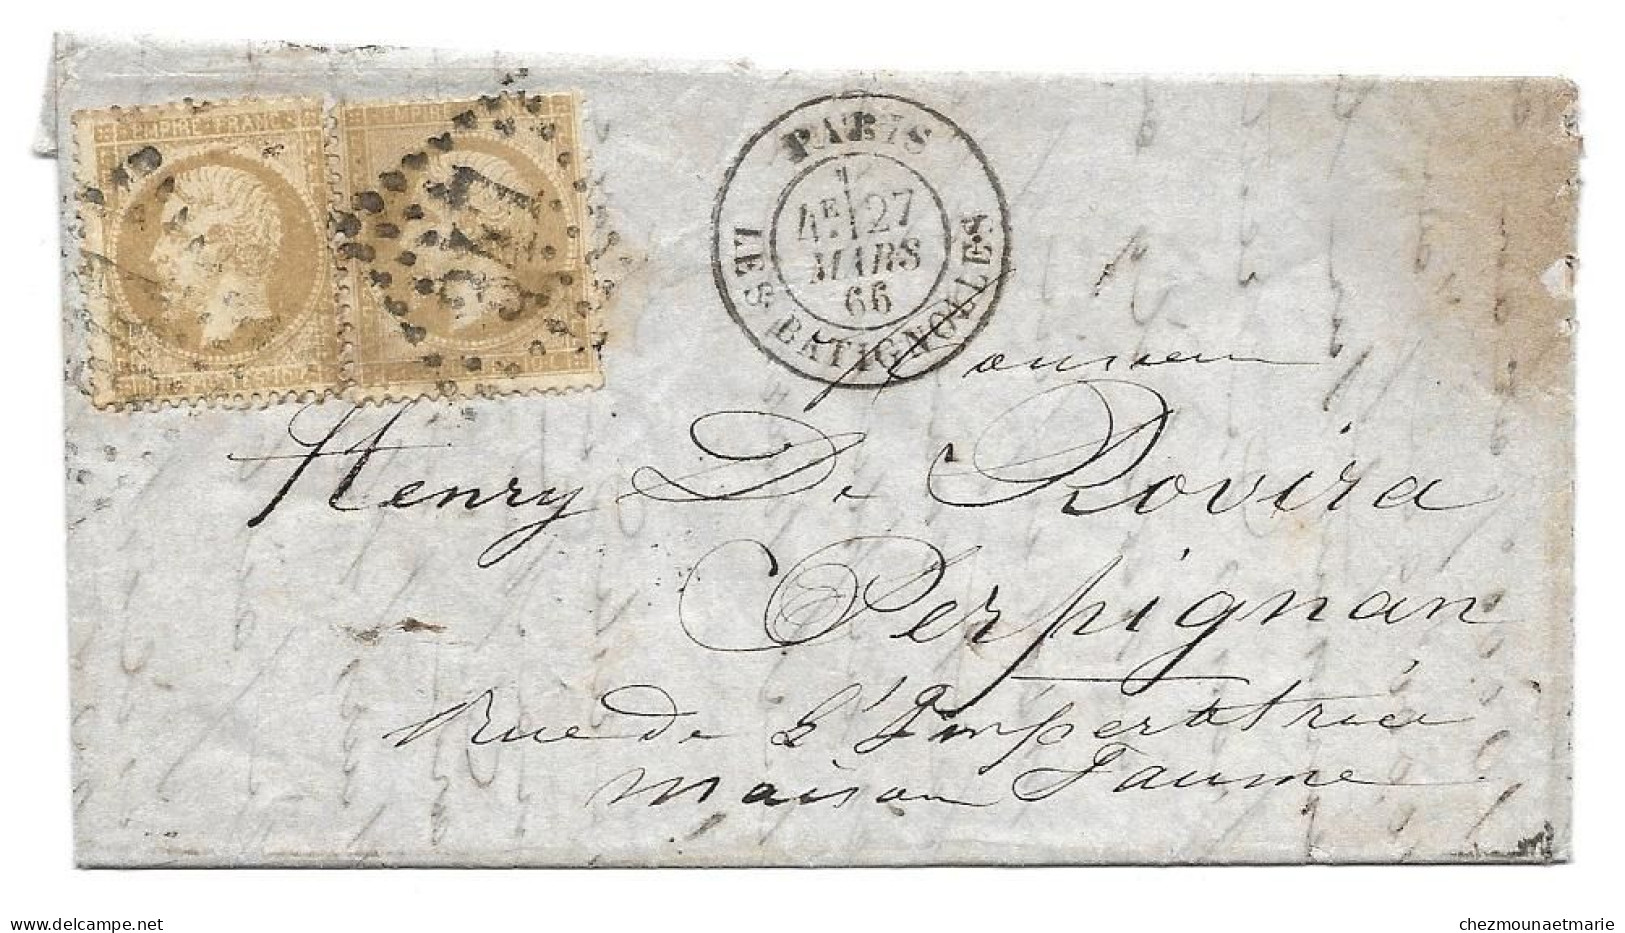 EMPIRE FRANC
EMP
PARIS
4E 27
MARS
66
LES BATIGNOLLES
Monsieur
Henry De Rovira
Perpignan
Rue de L'Impératrice
Maison Jaume
chezmounaetmarie